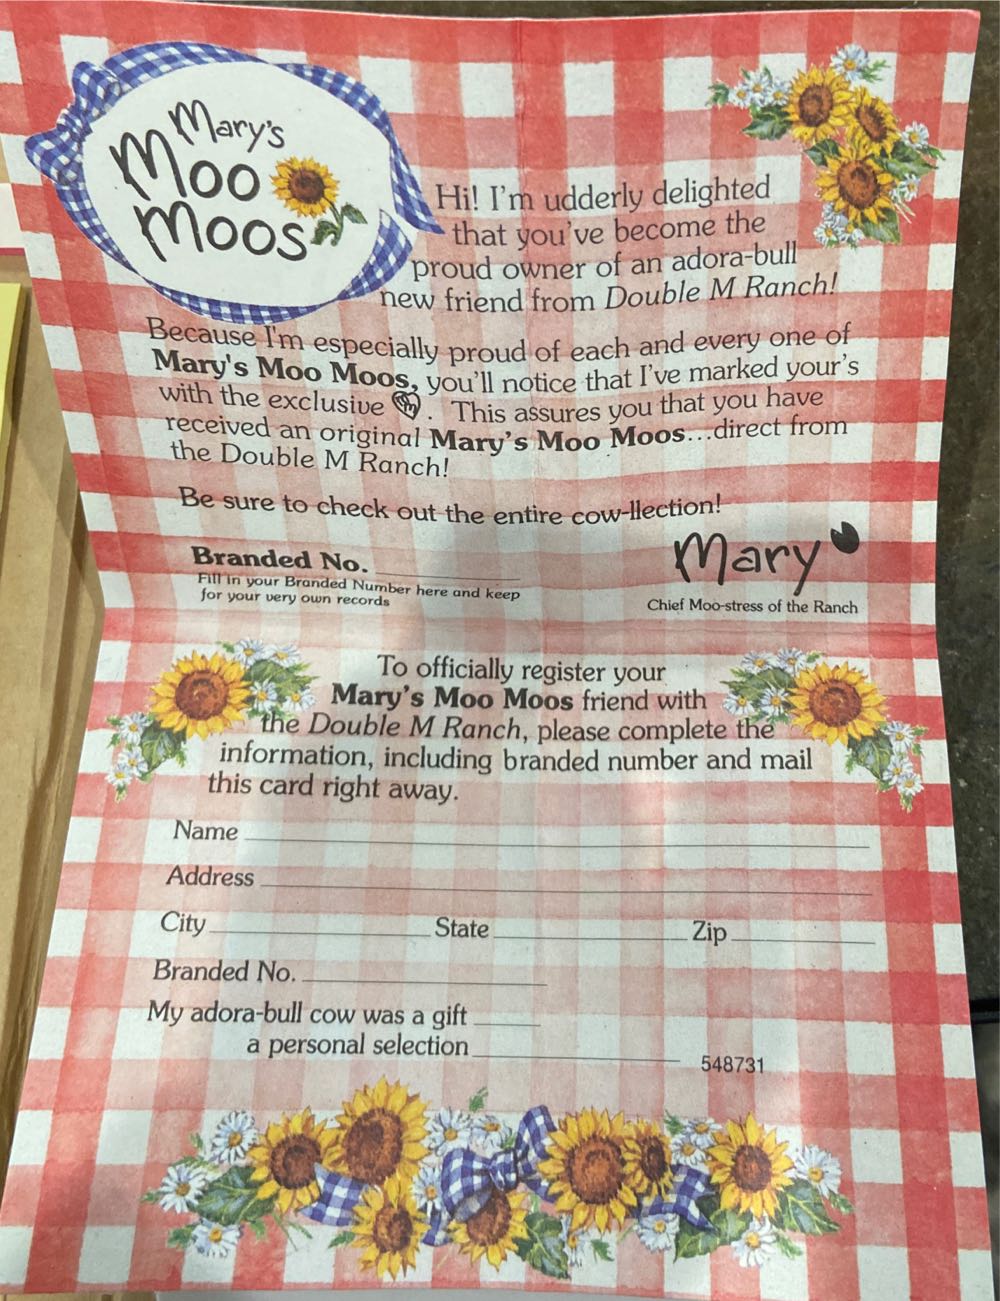 Mary's
Moo
Moos
Hi! I'm udderly delighted
that you've become the
proud owner of an adora-bull
new friend from Double M Ranch!
Because I'm especially proud of each and every one of
Mary's Moo Moos, you'll notice that I've marked your's
with the exclusive . This assures you that you have
received an original Mary's Moo Moos...direct from
the Double M Ranch!
Be sure to check out the entire cow-llection!
Branded No.
Fill in your Branded Number here and keep
for your very own records
Mary
Chief Moo-stress of the Ranch
To officially register your
Mary's Moo Moos friend with
the Double M Ranch, please complete the
information, including branded number and mail
this card right away.
Name
Address
City State Zip
Branded No.
My adora-bull cow was a gift
a personal selection
548731